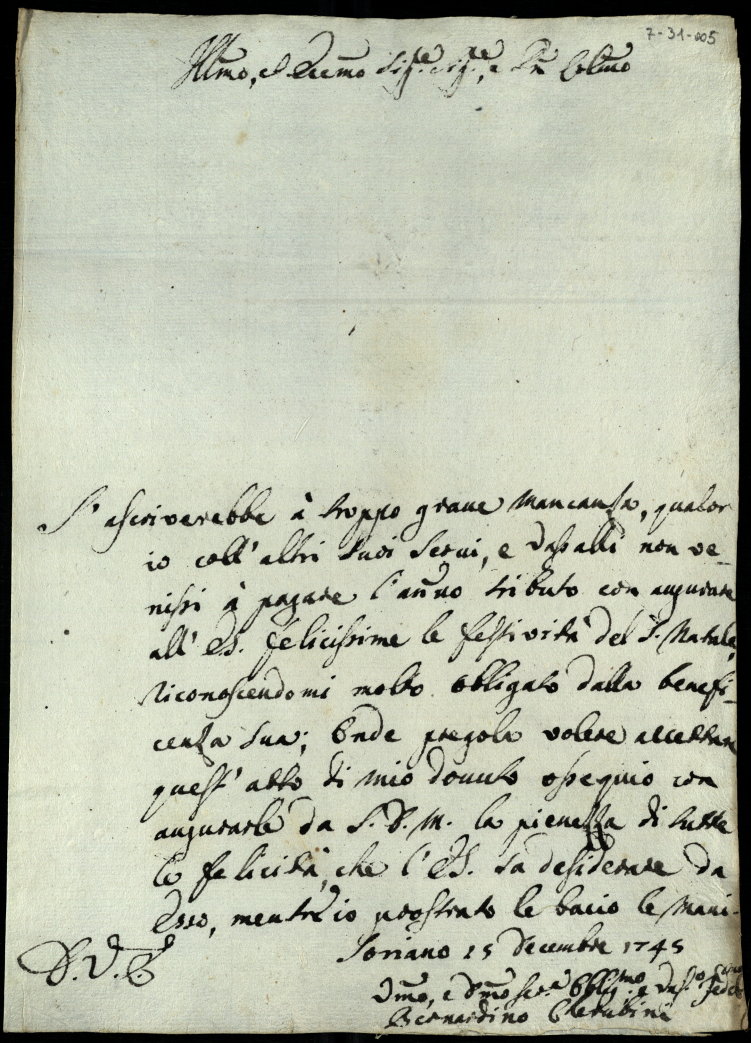 7-31-005
Illmo, ed Eccmo Sig.re Sig.re, e Pne Colmo
S'ascriverebbe à troppo grave mancanza, qualor
io coll'altri suoi servi, e vassalli non ve-
nissi à pagare l'annuo tributo con augurare
all'E.S. felicissime le festività del S. Natale,
riconoscendomi molto obbligato dalla benefi-
cenza sua; Onde pregola volere accettare
quest'atto di mio dovuto ossequio con
augurarle da S.D.M. la pienezza di tutte
le felicità, che l'E.S. sa desiderare da
Esso, mentr'io prostrato le bacio le mani.
Soriano 15 Decembre 1745
D.V.E.
Dmo, e Obblig.mo
Bernardino Cherubini